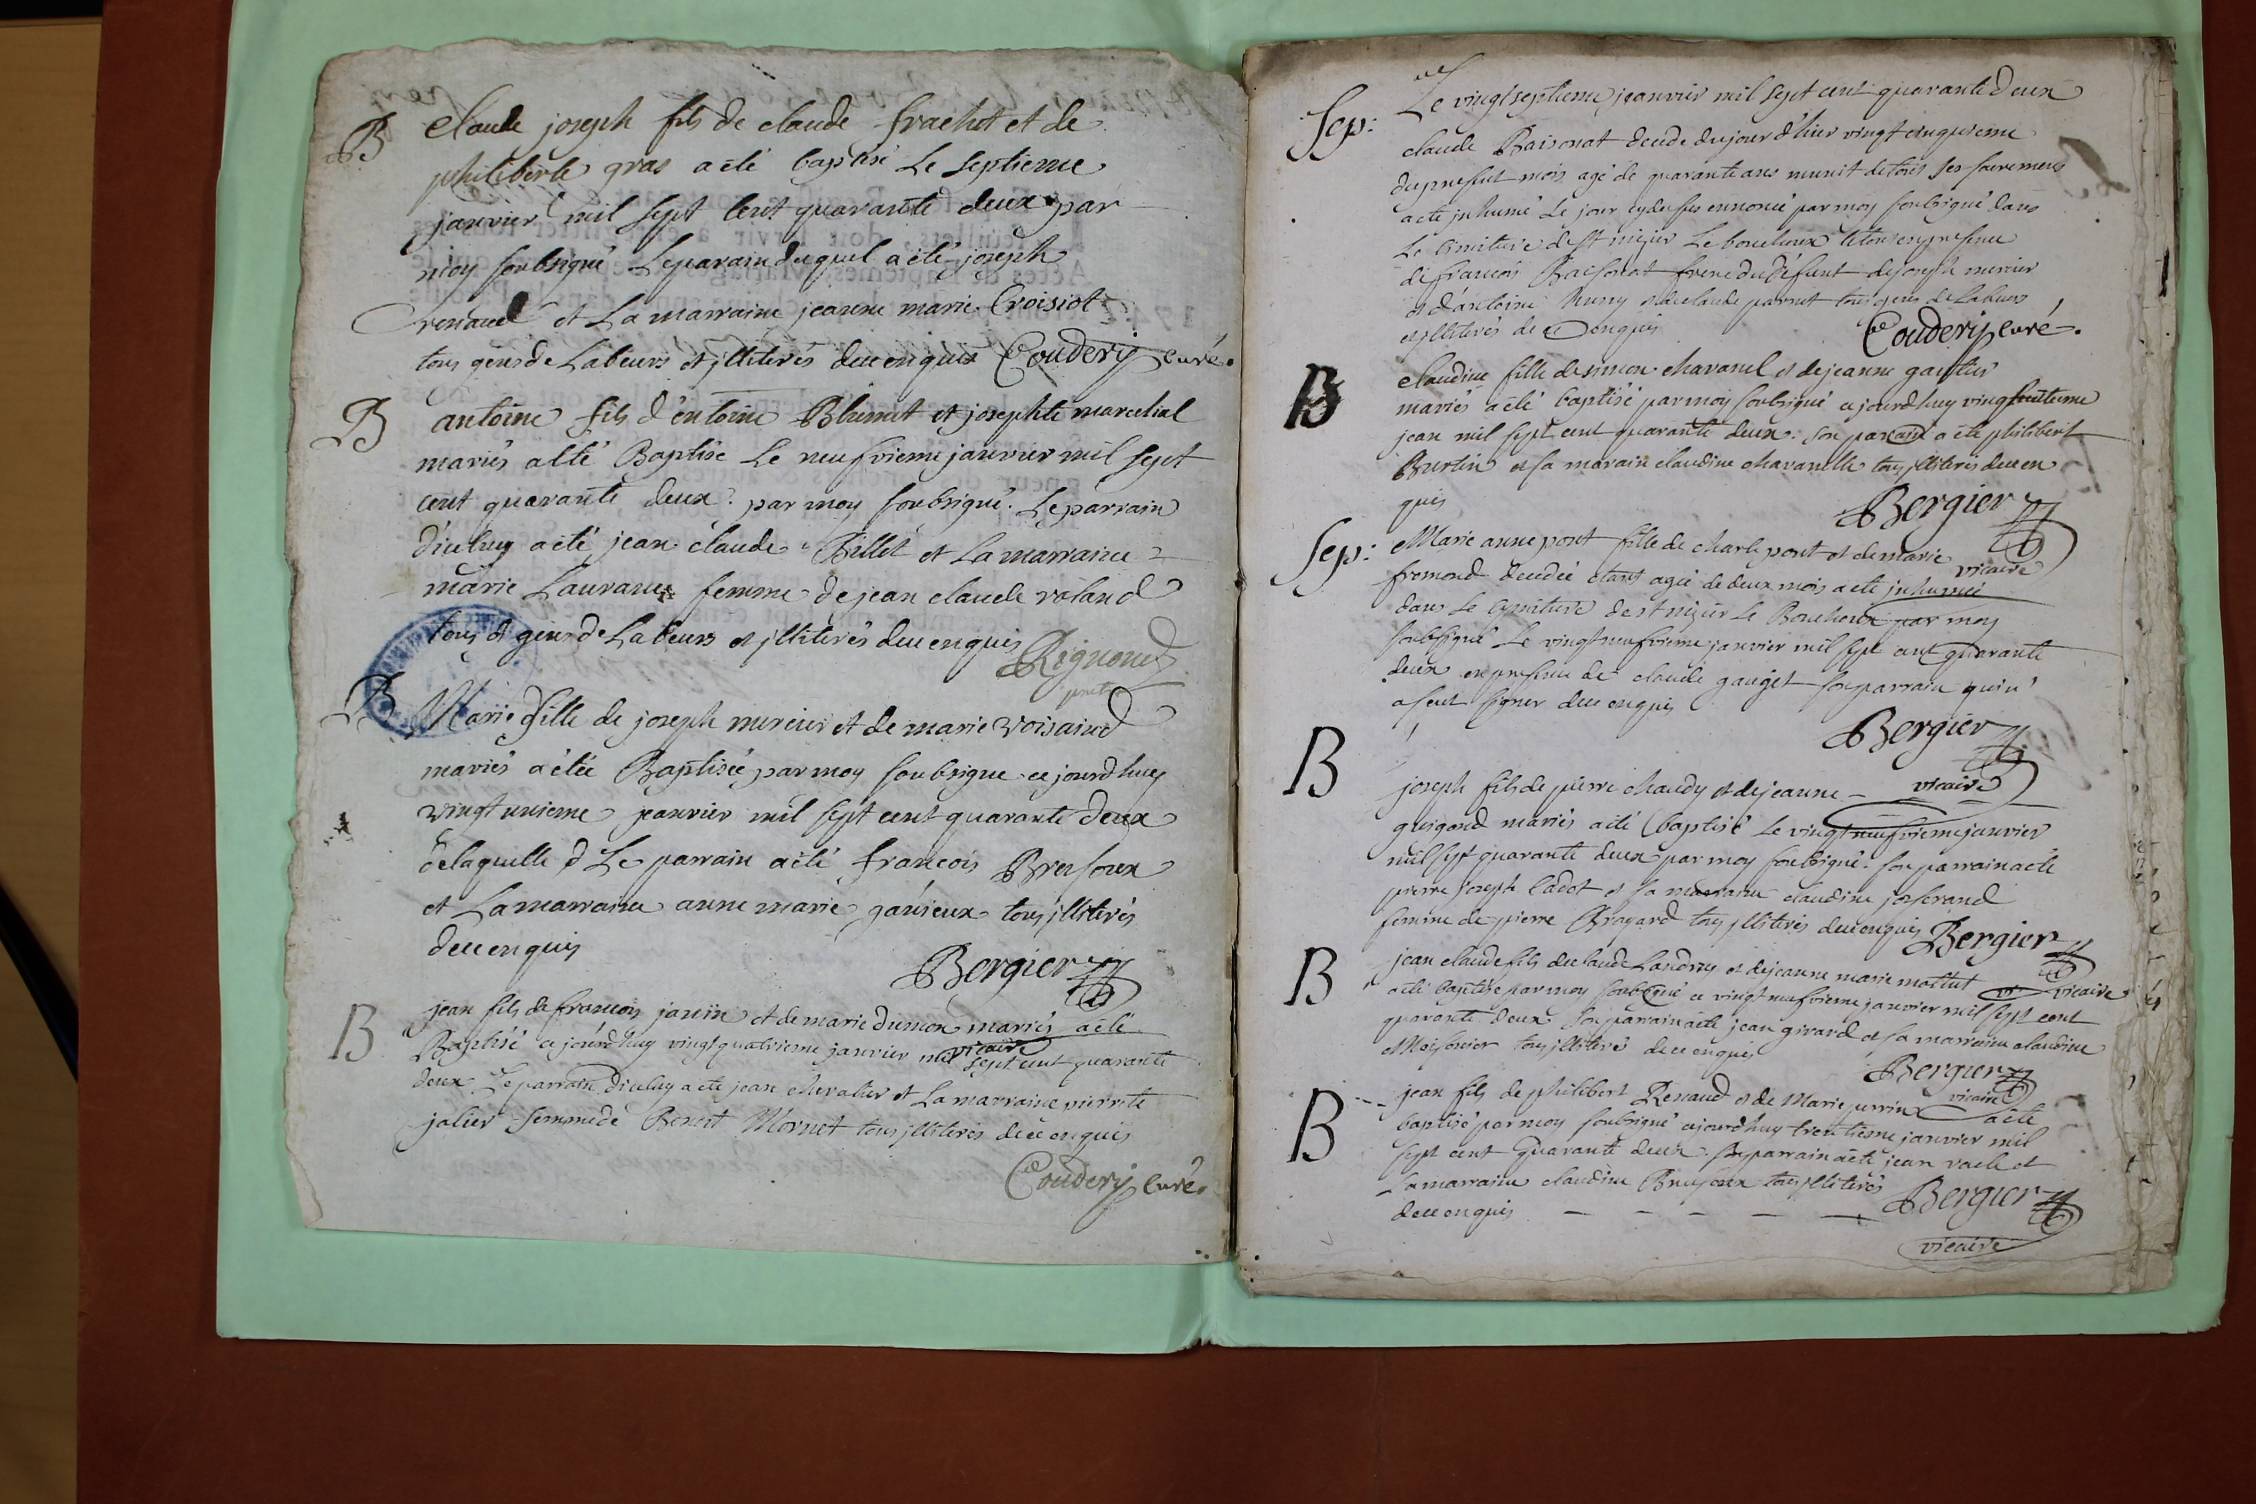 B
Claude joseph fils de claude frachet et de
philiberte gras a eté baptisé Le septieme
janvier mil sept Cent quarante deux par
moy soubsigné Leparain duquel a eté joseph
renaud et La marraine jeanne marie Croisiot
tous gens de Labeurs et jlliterés deceenquis Couderij curé.
B
antoine fils d'entoine Blumet et josephte marechal
mariés a eté Baptise Le neufvieme janvier mil sept
cent quarante deux. par moy soubsigné. Leparrain
d'iceluy a eté jean claude Billet et La marraine
marie femme de jean claude roland
tous gens de Labeurs et jlliterés dece enquis Rignoud
B
Marie fille de joseph mercier et de marie voisaind
mariés a étée Baptisée par moy soubsigne ce jourdhuy
vingt unieme jeanvier mil sept cent quarante deux
delaquelle Le parrain a eté francois Bresoux
et Lamarraine anne marie tous jlliterés
dece enquis
Bergier
vicaire
B
jean fils de francois janin et de marie dumon mariés a eté
Baptisé ce jourdhuy vingtquatrieme janvier mil sept cent quarante
deux Leparrain diceluy a eté jean chevalier et Lamarraine pierrete
jalier femme de Benoit Mornet tous jlliterés dece enquis
Couderij curé.
Sep:
Le vingtseptieme jeanvier mil sept cent quarante deux
claude Raisonat decedé dujour d'hier vingt
dupresent mois agé de quarante ans munit detous ses sacremens
a eté jnhumé Le jour cydessus ennoncé par moy soubsigné dans
Le cimitiere de st nizier Le bouchoux Letout enpresence
de francois Raisonat frere du défunt de joseph mercier
et d'antoine et de claude tous gens de Labeurs
et jlliterés de ce enquis
Couderij curé.
B
claudine fille de simon chavanel et de jeanne gautier
mariés a eté baptisé par moy soubsigné ce jourdhuy vingthuitieme
jean mil sept cent quarante deux. son parain a eté philibert
Burtin et sa marain claudine chavanelle tous jlliterés dece en
quis
Bergier
vicaire
Sep:
Marie anne pont fille de charle pont et de marie
fromond decedée etant agée de deux mois a eté jnhumée
dans Le cymitiere de st nizier Le Bouchoux par moy
soubsigné Le vingtneufvieme janvier mil sept cent quarante
deux enpresence de claude gauget son parrain qui n'
a seut signer dece enquis
Bergier
vicaire
B
joseph fils de pierre chaudy et de jeanne
guigond mariés a eté baptisé Le vingtneufvieme janvier
mil sept quarante deux par moy soubsigné. son parrain a eté
pierre joseph Cadot et sa marraine claudine josserand
femme de pierre Bragard tous jlliterés dece enquis Bergier
vicaire
B
jean claude fils de claude Landrey et de jeanne marie
a eté baptisé par moy soubsigné ce vingtneufvieme janvier mil sept cent
quarante deux son parrain a eté jean girard et sa marraine claudine
Moisonier tous jlliteré dece enquis
Bergier
vicaire
B
jean fils de philibert Renaud et de Marie perrin a eté
baptisé par moy soubsigné cejourdhuy trentieme janvier mil
sept cent quarante deux son parrain a eté jean et
sa marraine claudine Bresoux tous jlliterés
dece enquis
Bergier
vicaire